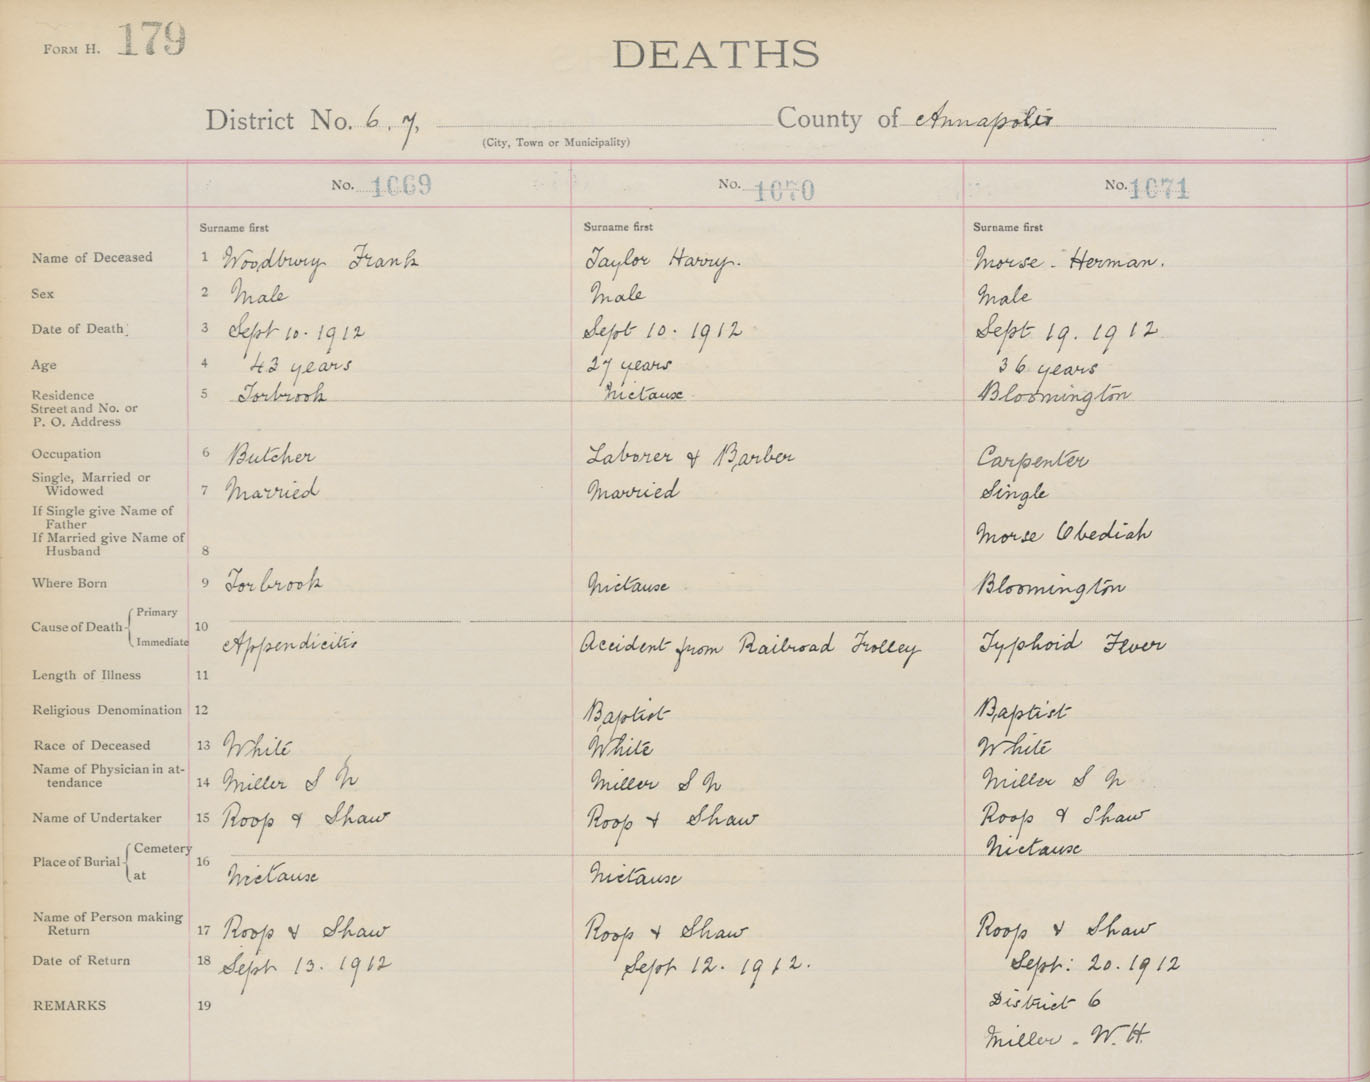 FORM H. 179
DEATHS
District No. 6. 7, County of Annapolis
(City, Town or Municipality)
No. 1069 No. 1070 No. 1071
Surname first Surname first Surname first
Name of Deceased 1 Woodbury Frank Taylor Harry. Morse - Herman.
Sex 2 Male Male Male
Date of Death 3 Sept 10. 1912 Sept 10. 1912 Sept 19. 1912
Age 4 43 years 27 years 36 years
Residence 5 Torbrook Nictaux Bloomington
Street and No. or
P. O. Address
Occupation 6 Butcher Laborer & Barber Carpenter
Single, Married or
Widowed 7 Married Married Single
If Single give Name of
Father
If Married give Name of Morse Obediah
Husband 8
Where Born 9 Torbrook Nictaux Bloomington
Cause of Death Primary 10
Immediate Appendicitis Accident from Railroad Trolley Typhoid Fever
Length of Illness 11
Religious Denomination 12 Baptist Baptist
Race of Deceased 13 White White White
Name of Physician in at-
tendance 14 Miller S N Miller S N Miller S N
Name of Undertaker 15 Roop & Shaw Roop & Shaw Roop & Shaw
Place of Burial Cemetery 16 Nictaux
at Nictaux Nictaux
Name of Person making
Return 17 Roop & Shaw Roop & Shaw Roop & Shaw
Date of Return 18 Sept 13. 1912 Sept 12. 1912. Sept: 20. 1912
REMARKS 19 District 6
Miller - W. H.